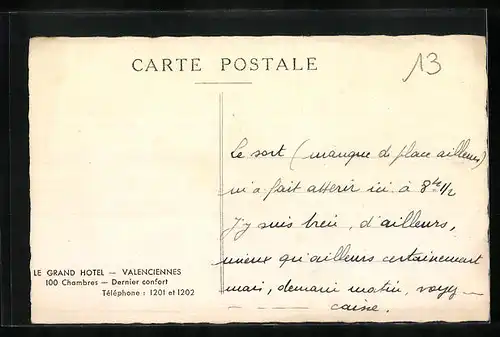 CARTE POSTALE
13
Le sort (manque de place ailleurs)
m'a fait atterir ici à 8 1/2
J'y suis bien, d'ailleurs,
mieux qu'ailleurs certainement
mais, demain matin,
caisse.
LE GRAND HOTEL — VALENCIENNES
100 Chambres — Dernier confort
Téléphone : 1201 et 1202